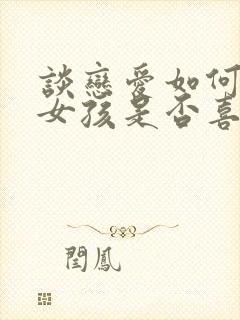 談戀愛如何
女孩是否喜
閆鳳